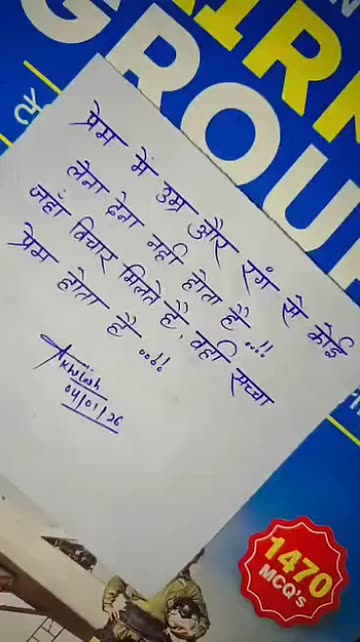 GROUP
प्रेम में उम्र और रंग से कोई
लेना देना नही होता है...!!
जहाँ विचार मिलते है, वही सच्चा
प्रेम होता है...!!
Akhilesh
04/01/26
1470
MCQ's